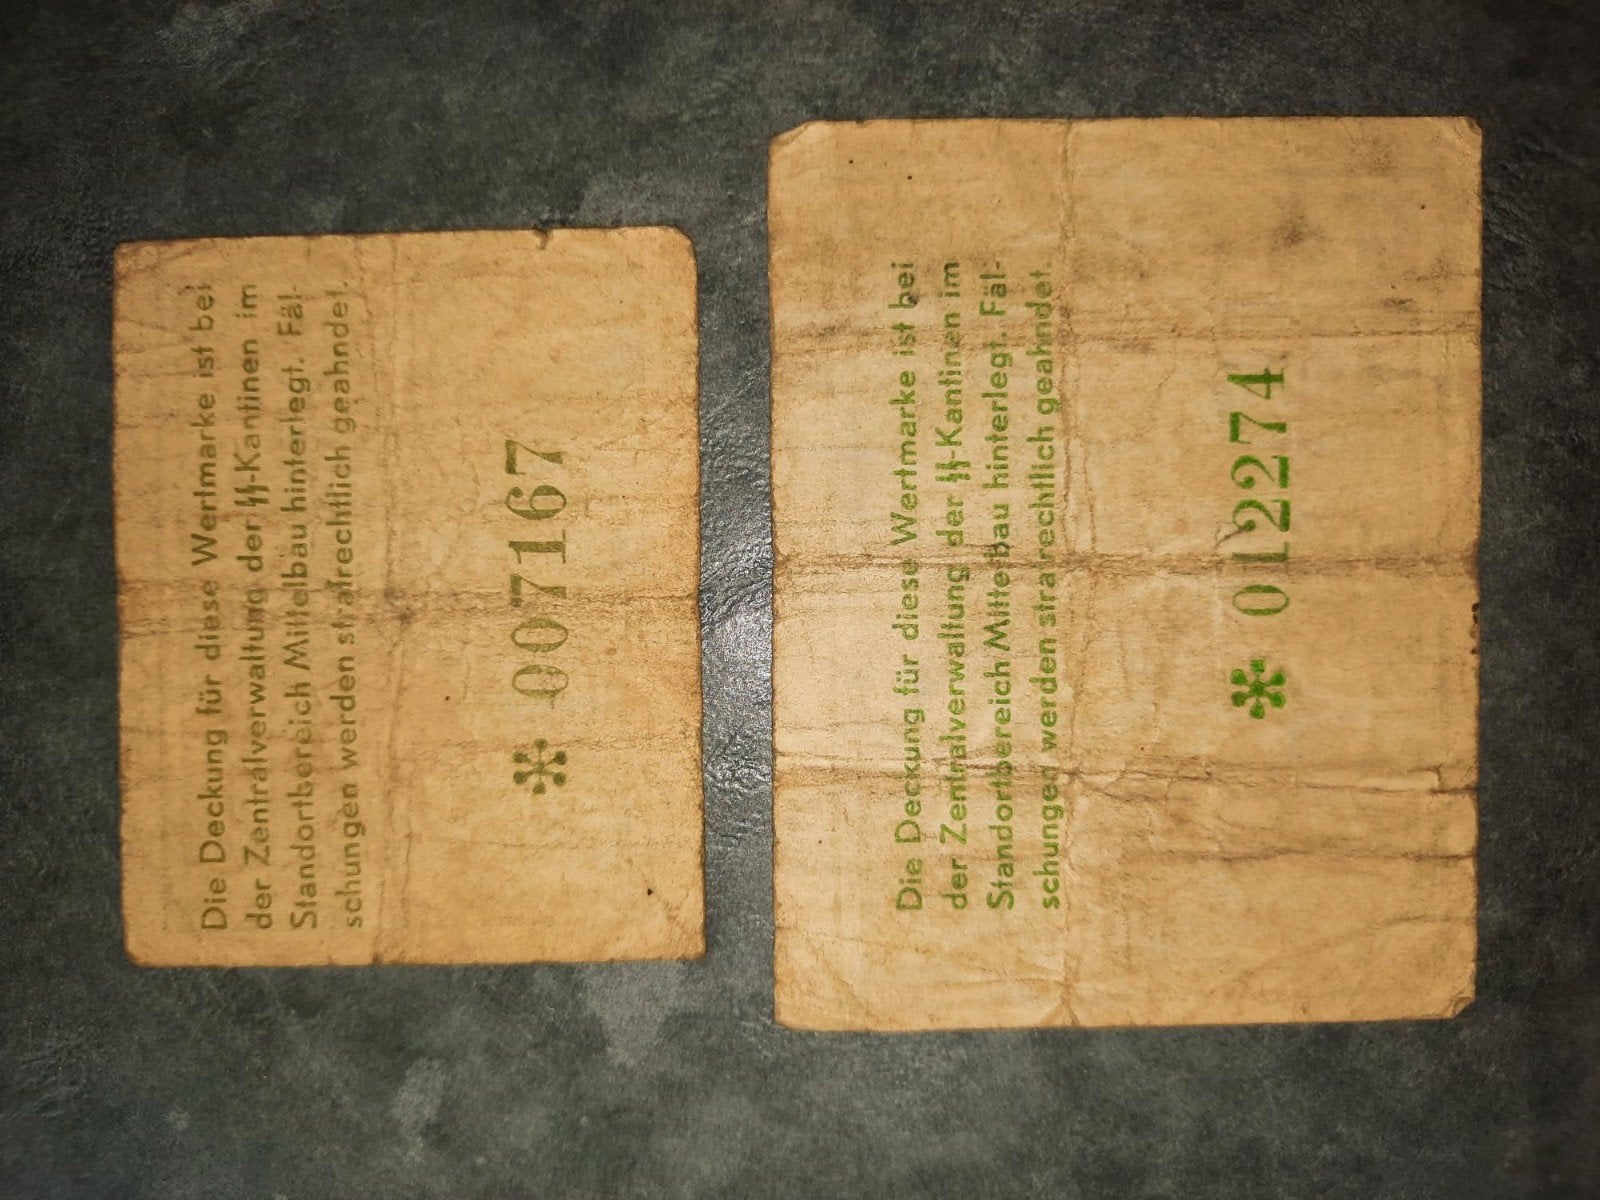 Die Deckung für diese Wertmarke ist bei
der Zentralverwaltung der ᛋᛋ-Kantinen im
Standortbereich Mittelbau hinterlegt. Fäl-
schungen werden strafrechtlich geahndet.
* 007167
Die Deckung für diese Wertmarke ist bei
der Zentralverwaltung der ᛋᛋ-Kantinen im
Standortbereich Mittelbau hinterlegt. Fäl-
schungen werden strafrechtlich geahndet.
* 012274